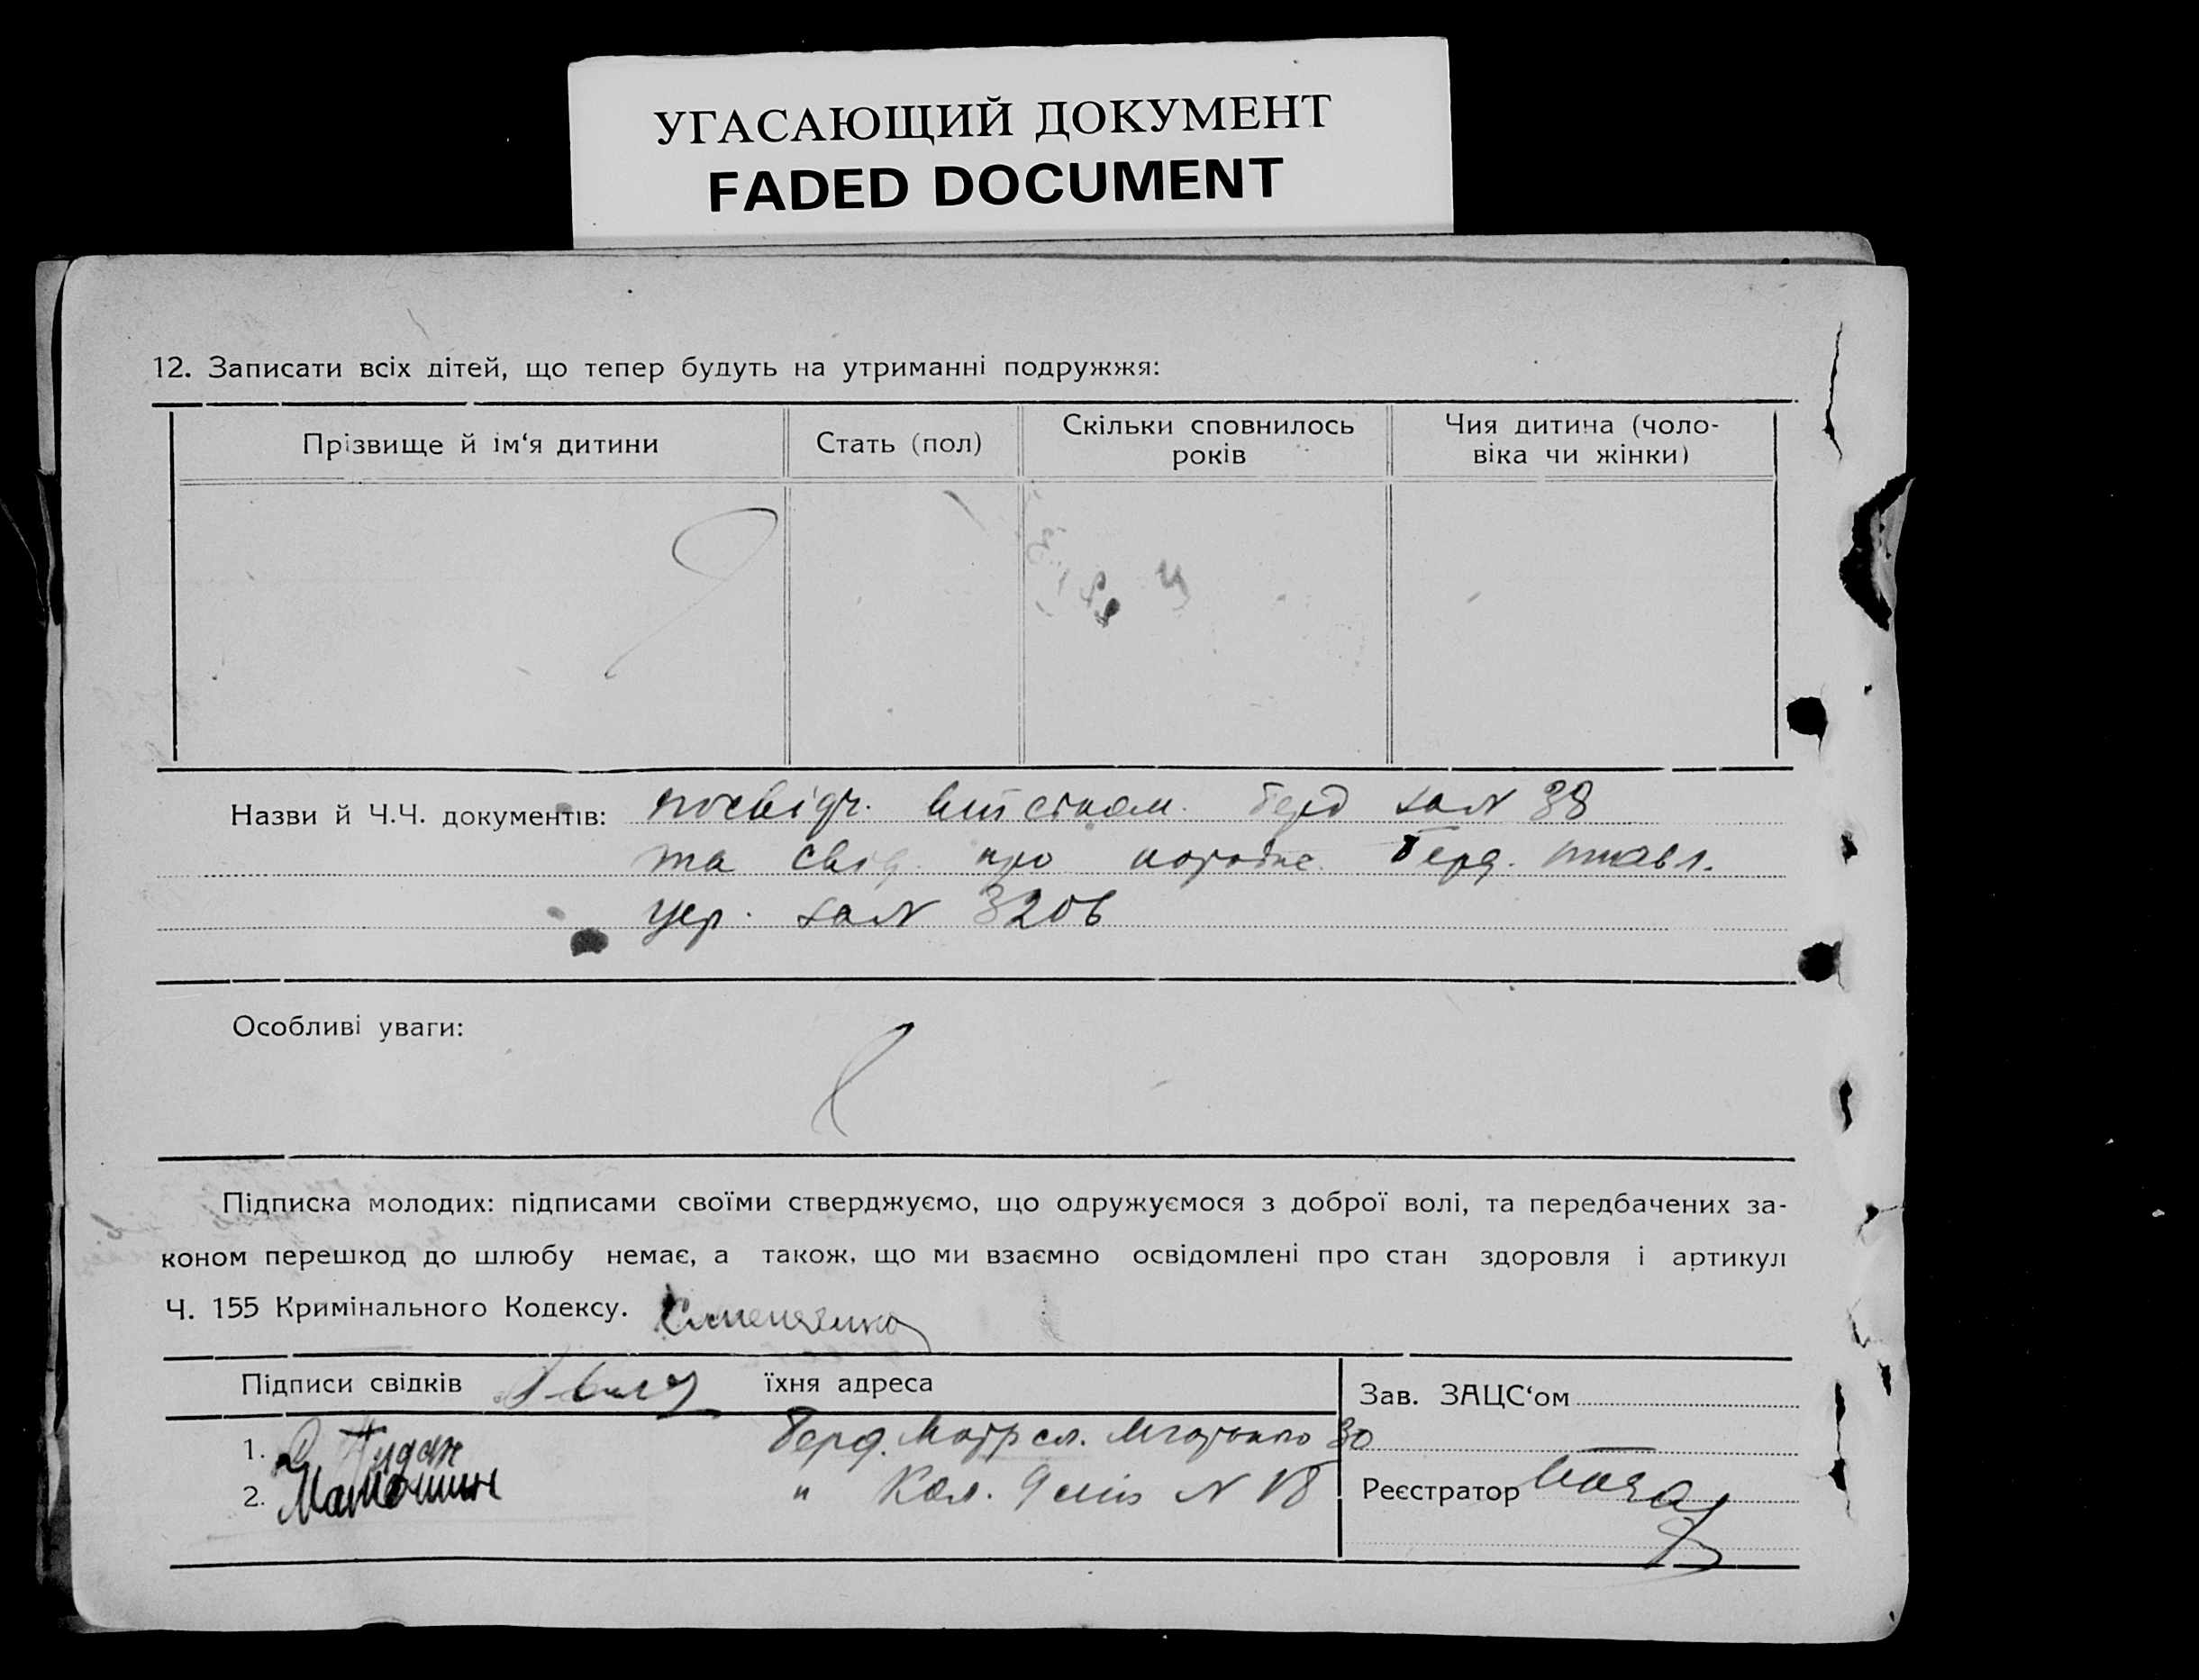 УГАСАЮЩИЙ ДОКУМЕНТ
FADED DOCUMENT
12. Записати всіх дітей, що тепер будуть на утриманні подружжя:
Прізвище й ім‘я дитини
Стать (пол)
Скільки сповнилось
років
Чия дитина (чоло-
віка чи жінки)
Назви й Ч.Ч. документів: посвідч. за № 38
та свід. про Берд.
цер. за № 3206
Особливі уваги:
Підписка молодих: підписами своїми стверджуємо, що одружуємося з доброї волі, та передбачених за-
коном перешкод до шлюбу немає, а також, що ми взаємно освідомлені про стан здоровля і артикул
Ч. 155 Кримінального Кодексу.
Підписи свідків
їхня адреса
Зав. ЗАЦС‘ом
1. Берд. 30
2. Матюшин " Кол. N 18
Реєстратор